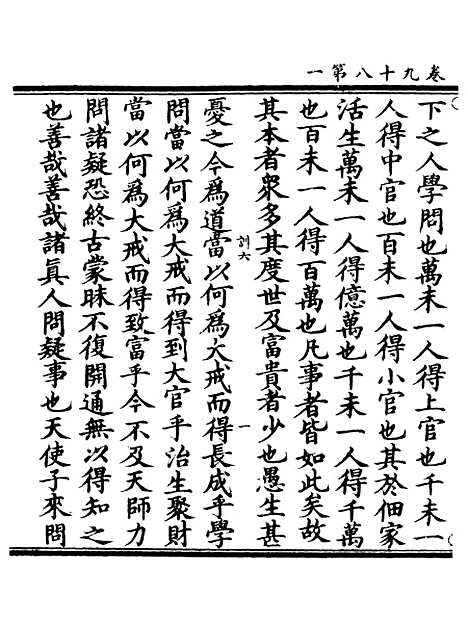 卷九十八第一
下之人學問也萬未一人得上官也千未一
人得中官也百未一人得小官也其於佃家
活生萬未一人得億萬也千未一人得千萬
也百未一人得百萬也凡事者皆如此矣故
其本者衆多其度世及富貴者少也愚生甚
訓六 一
憂之今爲道當以何爲大戒而得長成乎學
問當以何爲大戒而得到大官乎治生聚財
當以何爲大戒而得致富乎今不及天師力
問諸疑恐終古蒙昧不復開通無以得知之
也善哉善哉諸眞人問疑事也天使子來問